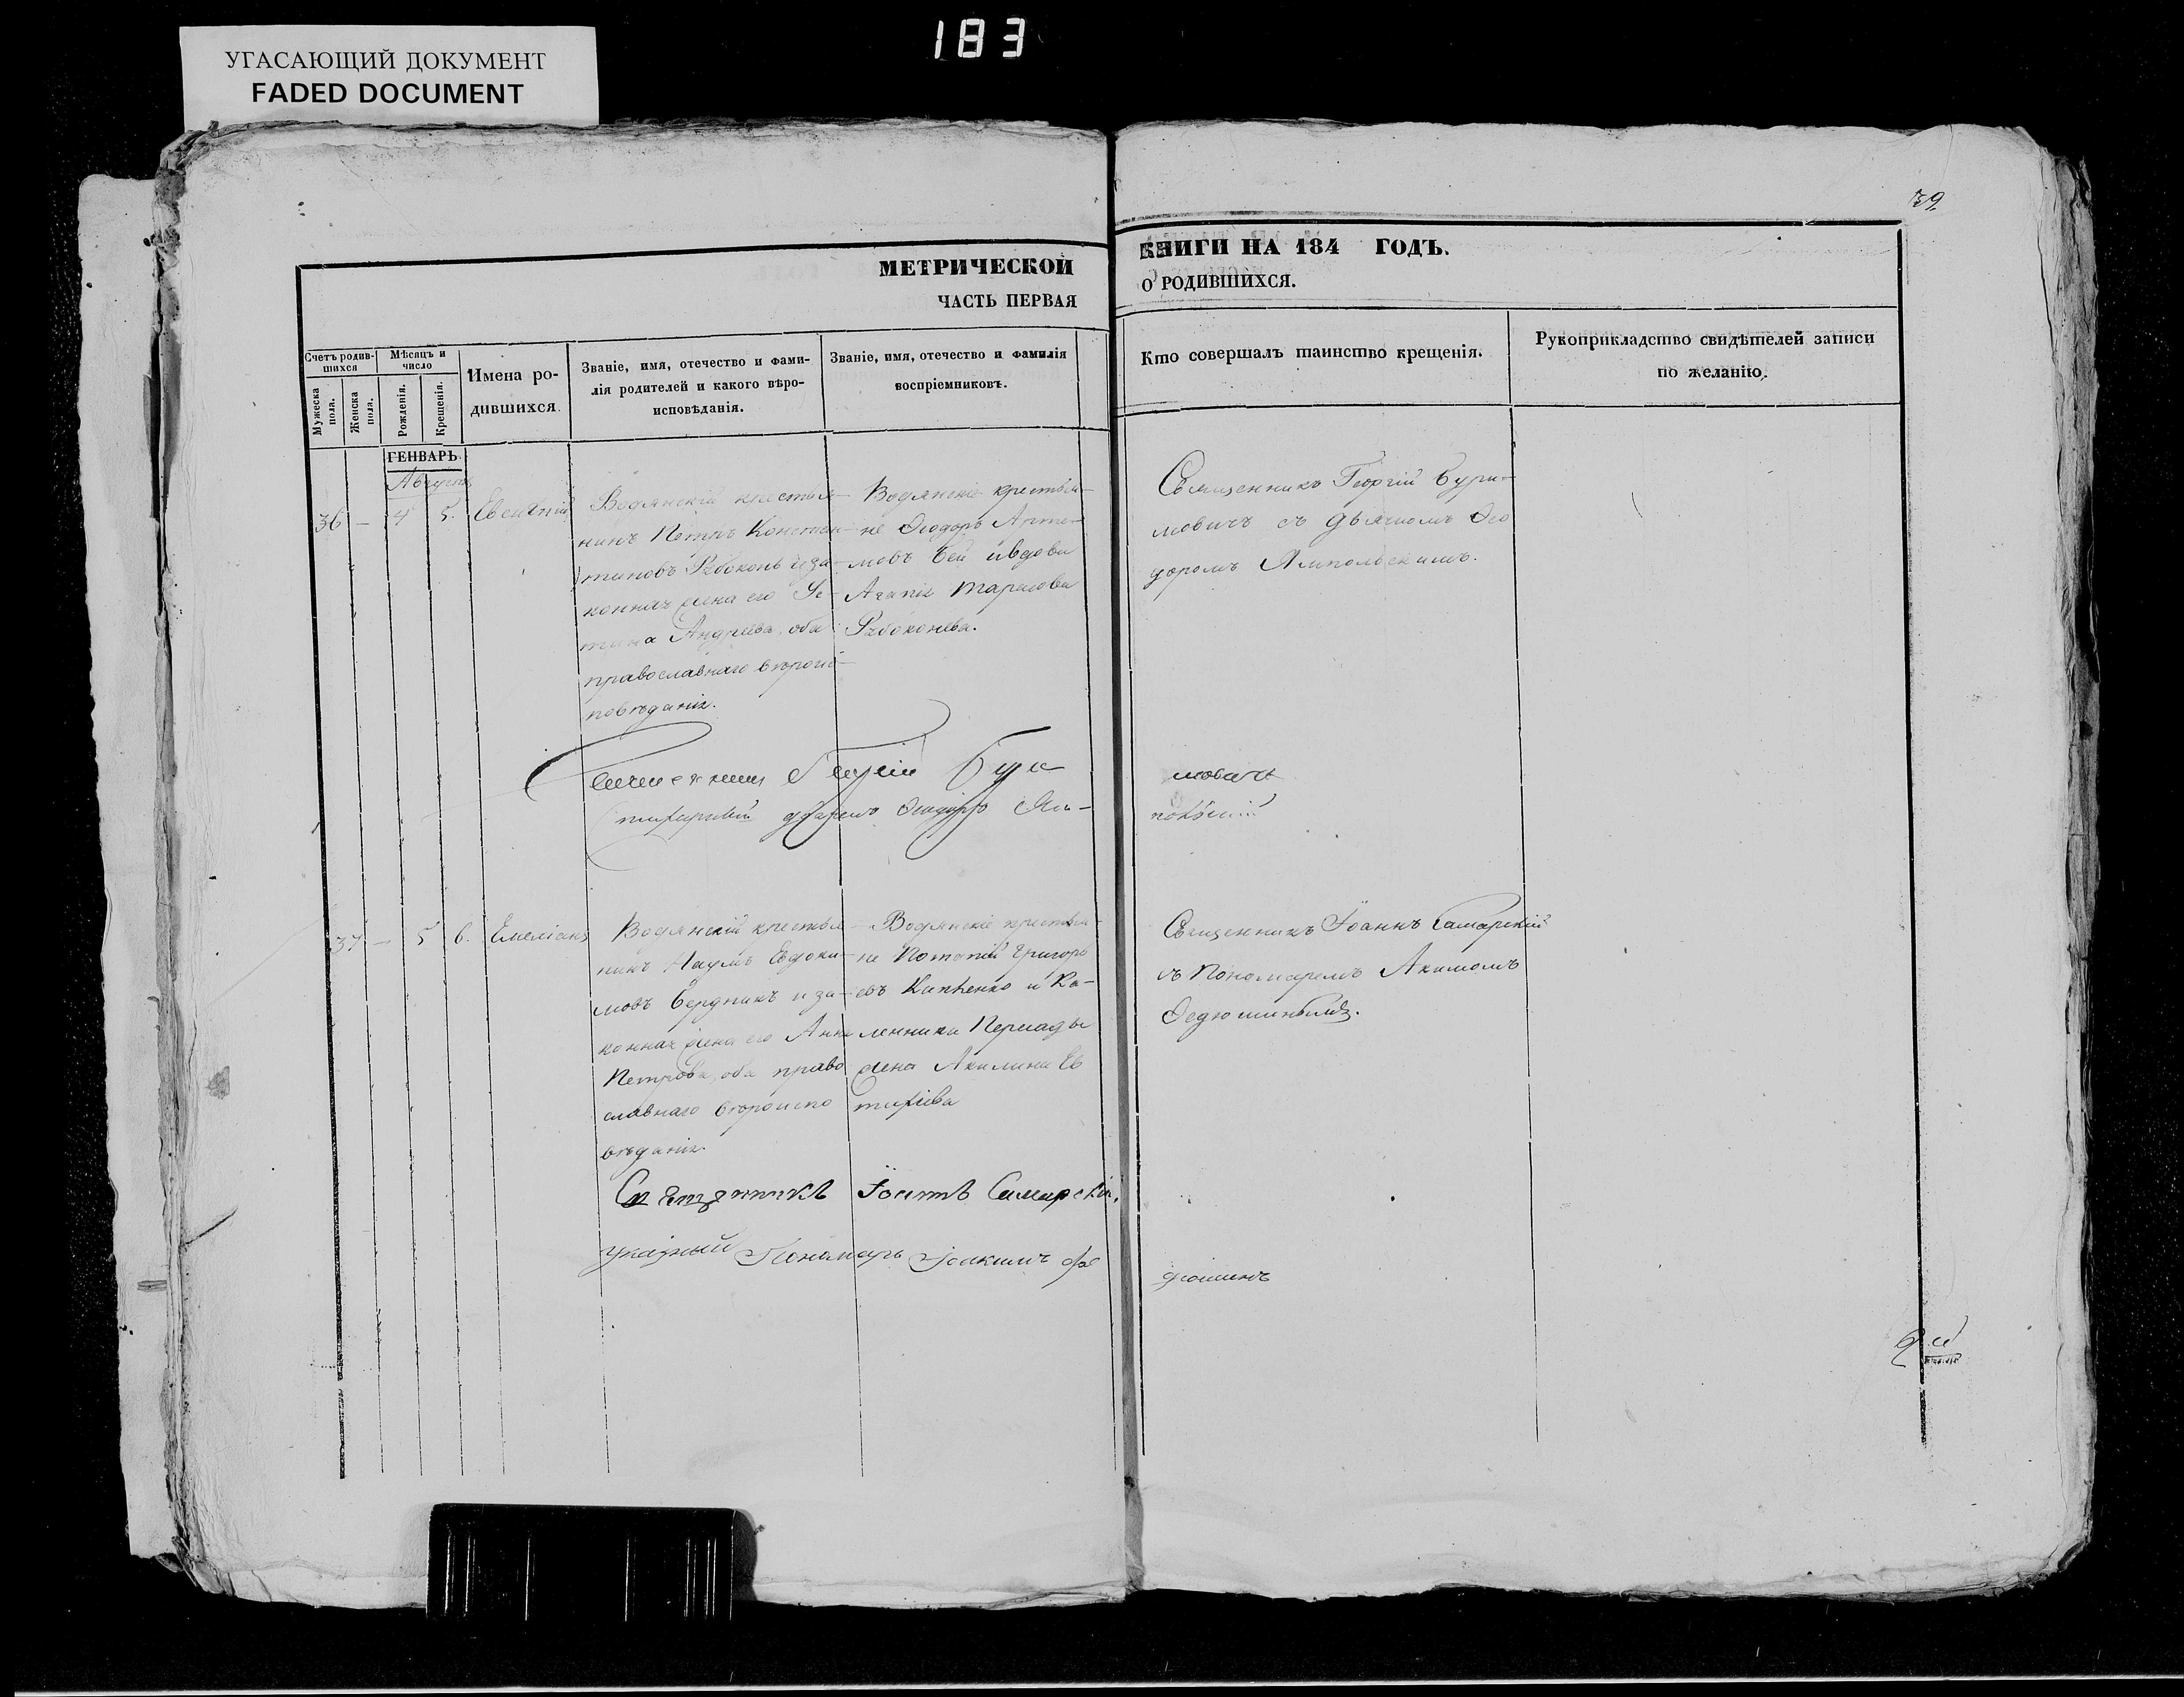 183
УГАСАЮЩИЙ ДОКУМЕНТ
FADED DOCUMENT
39
МЕТРИЧЕСКОЙ
ЧАСТЬ ПЕРВАЯ
КНИГИ НА 184 ГОДЪ.
О РОДИВШИХСЯ.
Счетъ родив-
шихся
Мужеска
пола.
Женска
пола.
Мѣсяцъ и
число
Рожденія.
Крещенія.
Имена ро-
дившихся.
Званіе, имя, отечество и фами-
лія родителей и какого вѣро-
исповѣданія.
Званіе, имя, отечество и фамилія
воспріемниковъ.
Кто совершалъ таинство крещенія.
Рукоприкладство свидѣтелей записи
по желанію.
ГЕНВАРЬ.
Августъ
36 – 4 5.
Водянскій крестья-
нинъ Петръ Констан-
тиновъ Рябоконь и за-
конная жена его Ус-
тина Андреева, оба
православнаго вѣроис-
повѣданія.
Водянскіе крестья-
не Ѳеодоръ Арте-
мовъ Бей и вдова
Агапія Тарасова
Рябоконева.
Священникъ Георгій Бури-
мовичъ съ дьячкомъ Ѳео
доромъ Ямпольскимъ.
Священникъ Георгій Бури
мовичъ
дьячекъ Ѳеодоръ Ям-
польскій
37 – 5 6. Емеліанъ
Водянскій крестья-
нинъ Наумъ Евдоки-
мовъ Бердникъ и за-
конная жена его Анна
Петрова, оба право
славнаго вѣроиспо
вѣданія.
Водянскіе крестья-
не Потапій Григорь
евъ и Ка-
менника
жена Акилина Ев
тихіева
Священникъ Іоаннъ Самарскій
съ Пономаремъ Акимомъ
Ѳедюшинымъ.
Священникъ Іоаннъ Самарскій,
указный Пономарь Іоакимъ Фе
дюшинъ